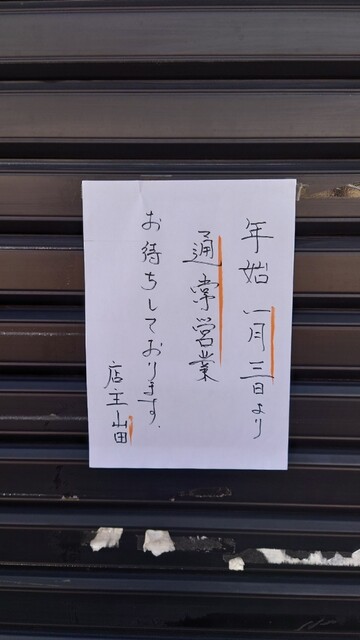 年始 一月三日より
通常営業
お待ちしております.
店主 山田